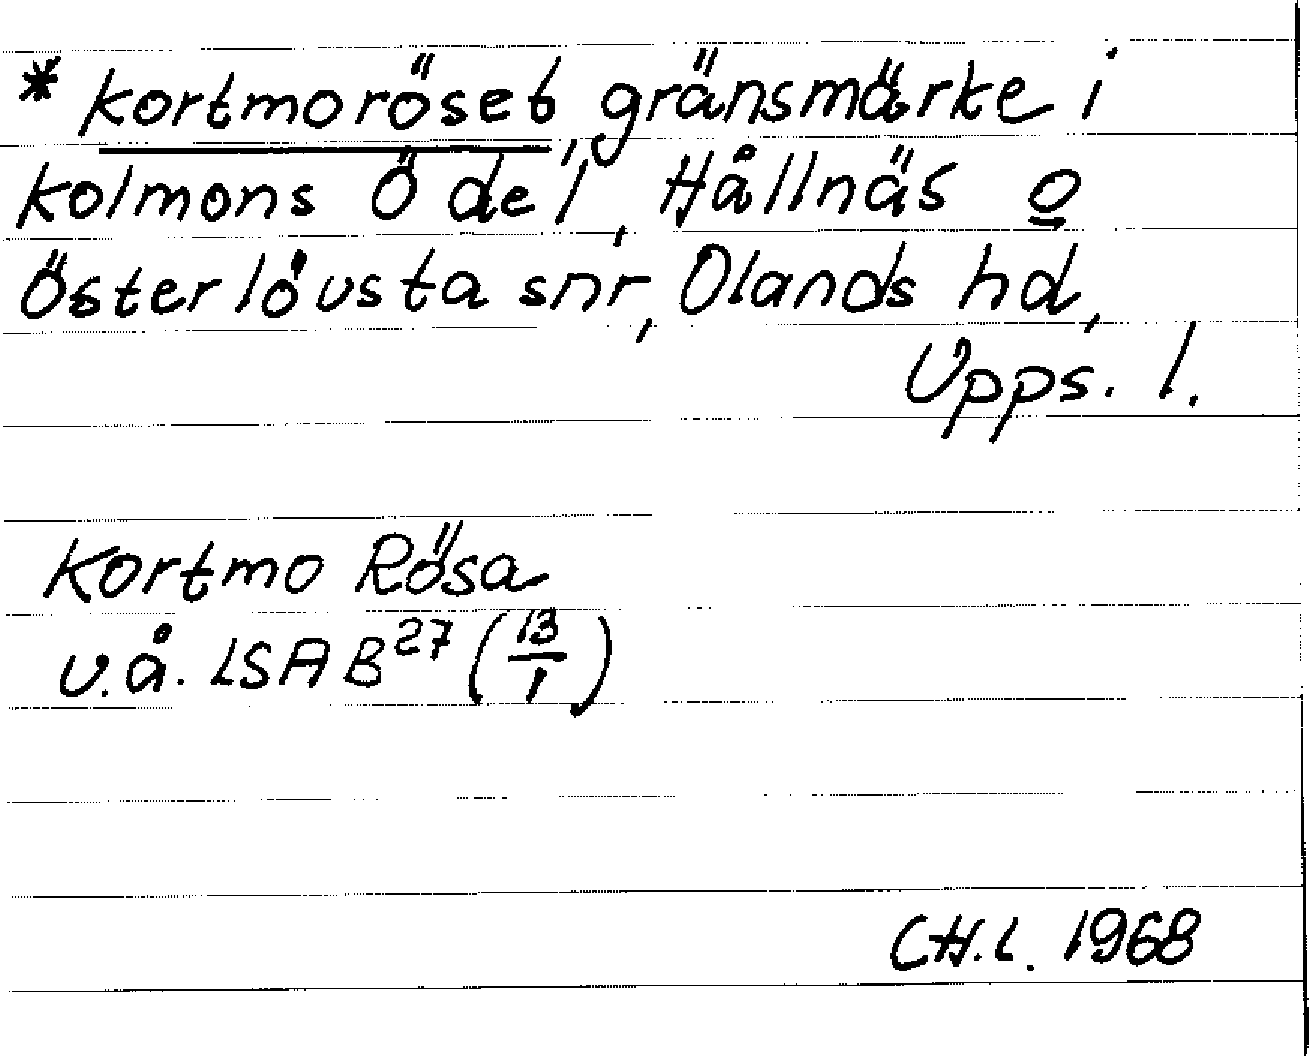 * Kortmoröset, gränsmärke i
Kolmons Ö del, Hållnäs o
Österlövsta snr, Olands hd,
Upps. l.
Kortmo Rösa
u.å. LSA B27 (13/1)
CH.L. 1968